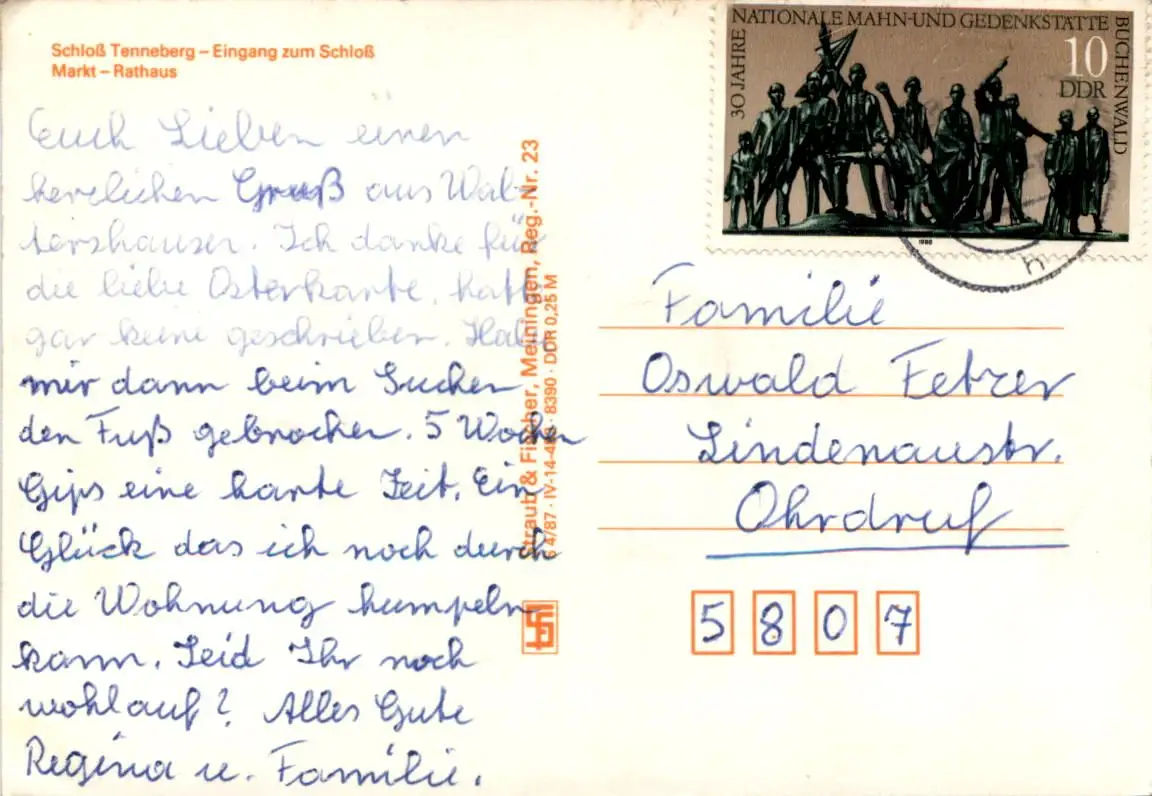 Schloß Tenneberg – Eingang zum Schloß
Markt – Rathaus
Euch Lieben einen
herzlichen Gruß aus Wal-
tershausen. Ich danke für
die liebe Osterkarte, hatte
gar keine geschrieben. Habe
mir dann beim Suchen
den Fuß gebrochen. 5 Wochen
Gips eine harte Zeit. Ein
Glück das ich noch durch
die Wohnung humpeln
kann. Seid Ihr noch
wohlauf? Alles Gute
Regina u. Familie.
Straub & Fischer, Meiningen, Reg.-Nr. 23
4/87 · IV-14-483 · 8390 · DDR 0,25 M
30 JAHRE NATIONALE MAHN-UND GEDENKSTÄTTE BUCHENWALD
10
DDR
1988
h
Familie
Oswald Fetzer
Lindenaustr.
Ohrdruf
5807